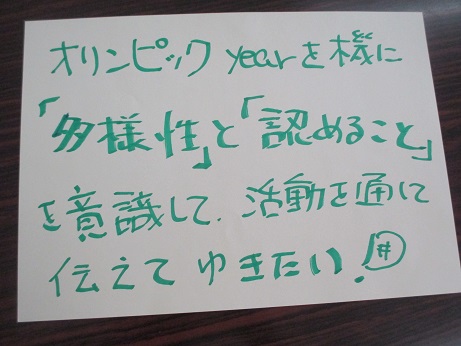 オリンピック yearを機に
「多様性」と「認めること」
を意識して、活動を通して
伝えてゆきたい!井